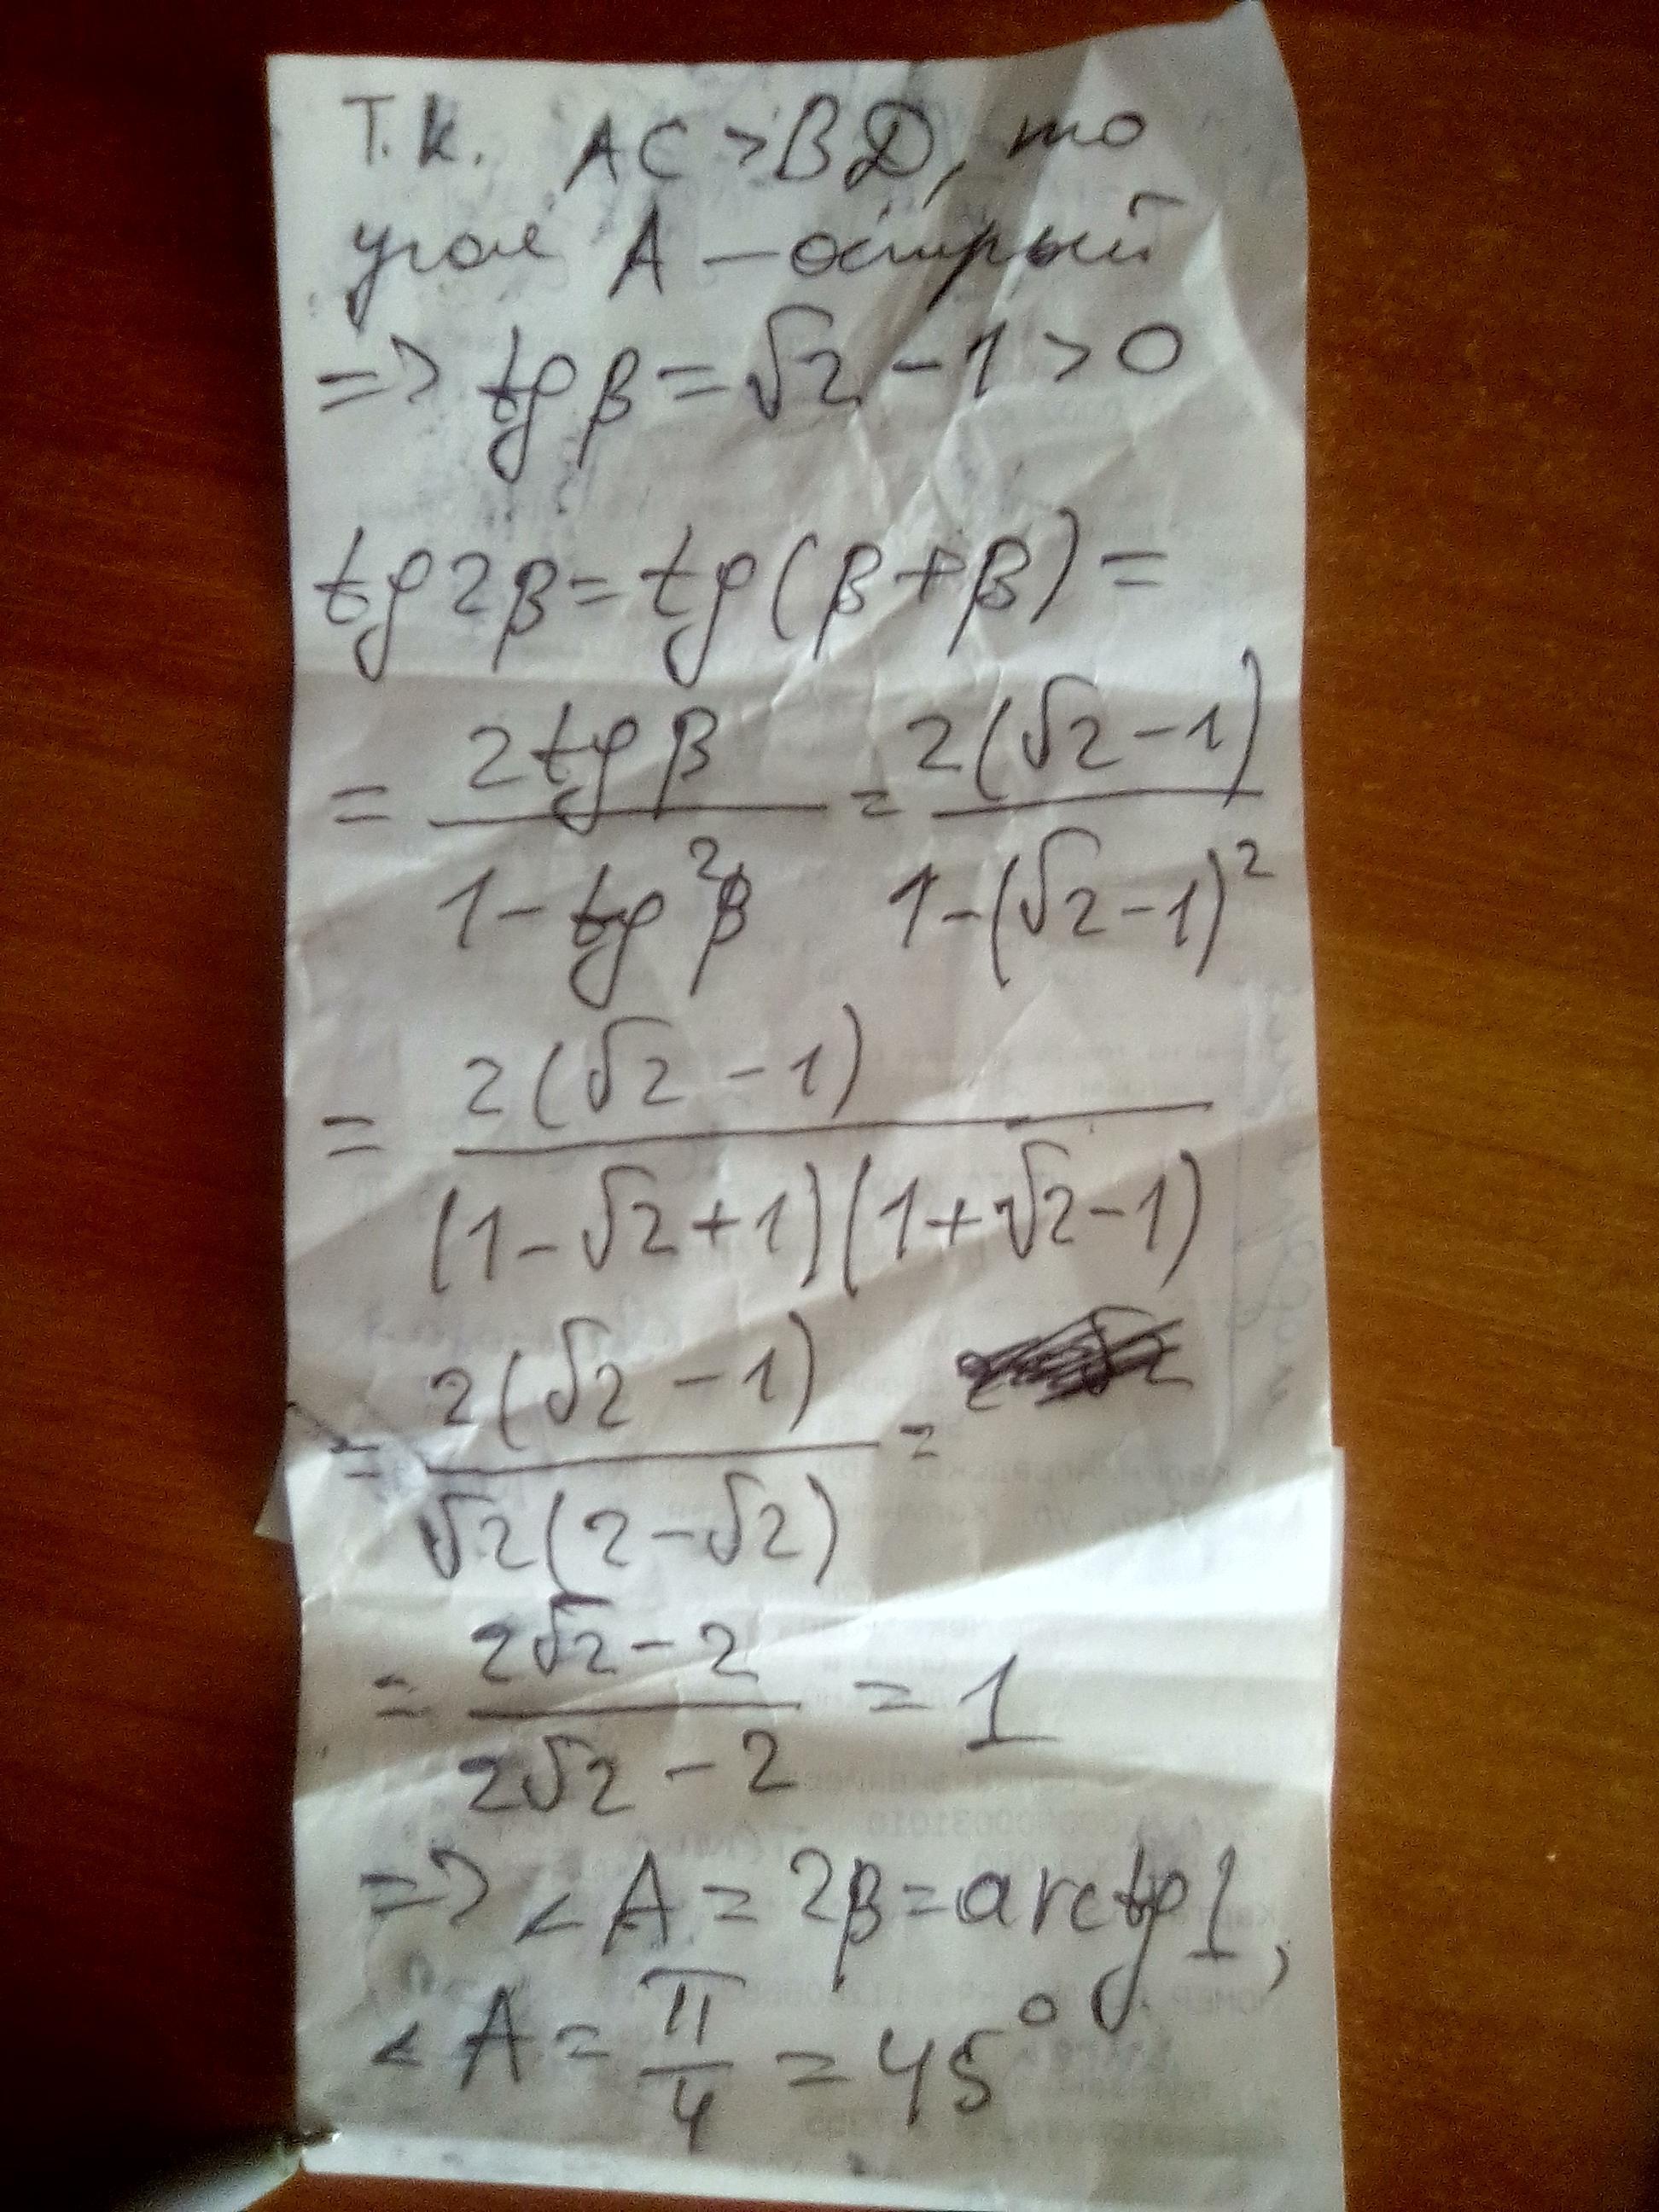 Т.к. AC > BD, то
угол A – острый
=> tg β = √2 - 1 > 0
tg 2β = tg (β + β) =
= 2 tg β / 1 - tg²β = 2(√2 - 1) / 1 - (√2 - 1)²
= 2(√2 - 1) / (1 - √2 + 1)(1 + √2 - 1)
= 2(√2 - 1) / √2(2 - √2) =
= 2√2 - 2 / 2√2 - 2 = 1
=> ∠A = 2β = arctg 1,
∠A = π/4 = 45°